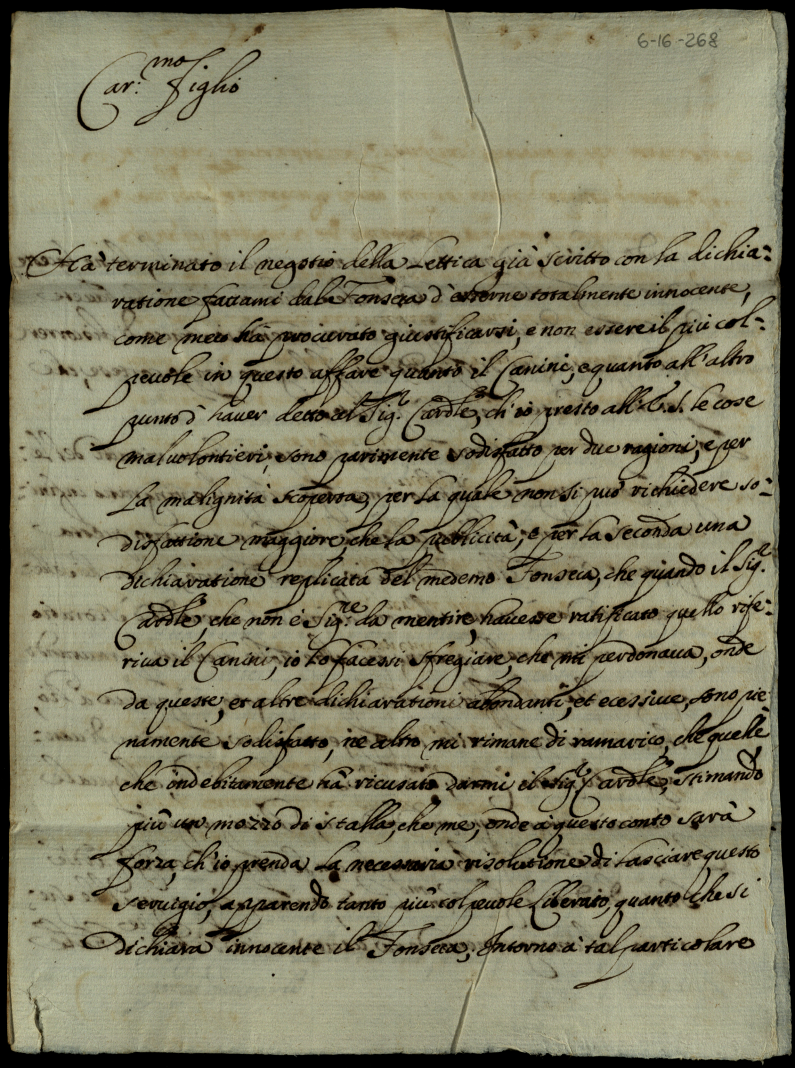 6-16-268
Car.mo figlio
Hà terminato il negotio della Lettica già scritto con la dichia=
ratione facciami dal Fonseca d'esserne totalmente innocente,
come meco hà procurato giustificarsi, e non essere il più col=
peuole in questo affare quanto il Canini, e quanto all'altro
punto d'hauer detto al Sig.r Cardle, ch'io presto all' le cose
maluolontieri, sono parimente sodisfatto per due ragioni, e per
la malignità scoperta, per la quale non si può richiedere so=
disfattione maggiore, che la publicità, e per la seconda una
dichiaratione replicata del medemo Fonseca, che quando il Sig.r
Cardle, che non è Sig.re da mentire, hauesse ratificato quello rife=
riua il Canini, io lo facessi sfregiare, che mi perdonaua, onde
da queste, et altre dichiarationi abondanti, et ecessiue, sono pie
namente sodisfatto, ne altro mi rimane di ramarico, che quelle
che indebitamente hà ricusato darmi il Sig.r Cardle, stimando
più un mozzo di stalla, che me, onde à questo conto sarà
forza, ch'io prenda la necessaria risolutione di lasciare questo
seruigio, apparendo tanto più colpeuole Liberato, quanto che si
dichiara innocente il Fonseca, Intorno à tal particolare